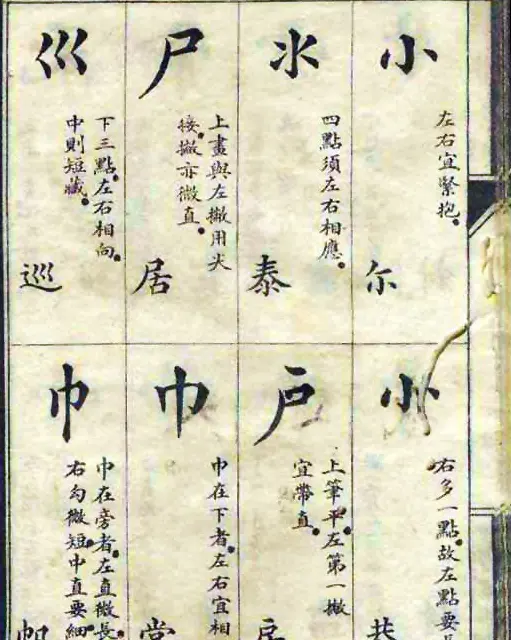 小
左右宜緊抱
尓
氺
四點須左右相應
泰
尸
上畫與左撇用尖
接撇亦微直
居
巛
下三點左右相向
中則短藏
巡
⺗
右多一點故左點要
恭
戸
上筆平左第一撇
宜帶直
房
巾
巾在下者左右宜相
常
巾
巾在旁者左直微長
右勾微短中直要細
帆